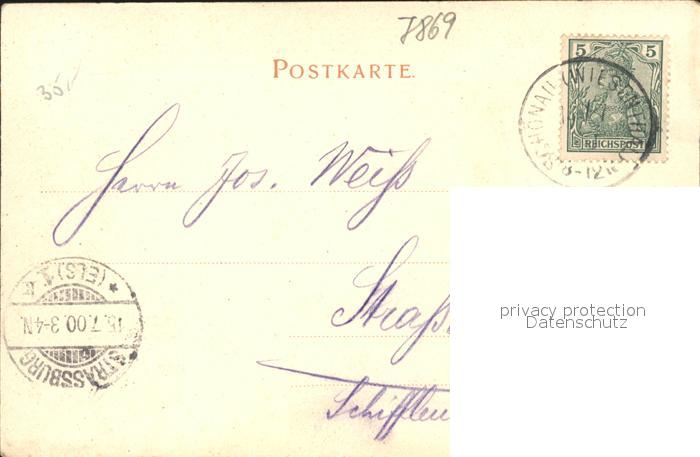 J869
35
POSTKARTE.
5 5
REICHSPOST
SCHÖNAU (WIESENTHAL)
8-12
Herrn Jos. Weiß
Straß
Schifflen
STRASSBURG
(ELS) 1
15.7.00.3-4N.
privacy protection
Datenschutz